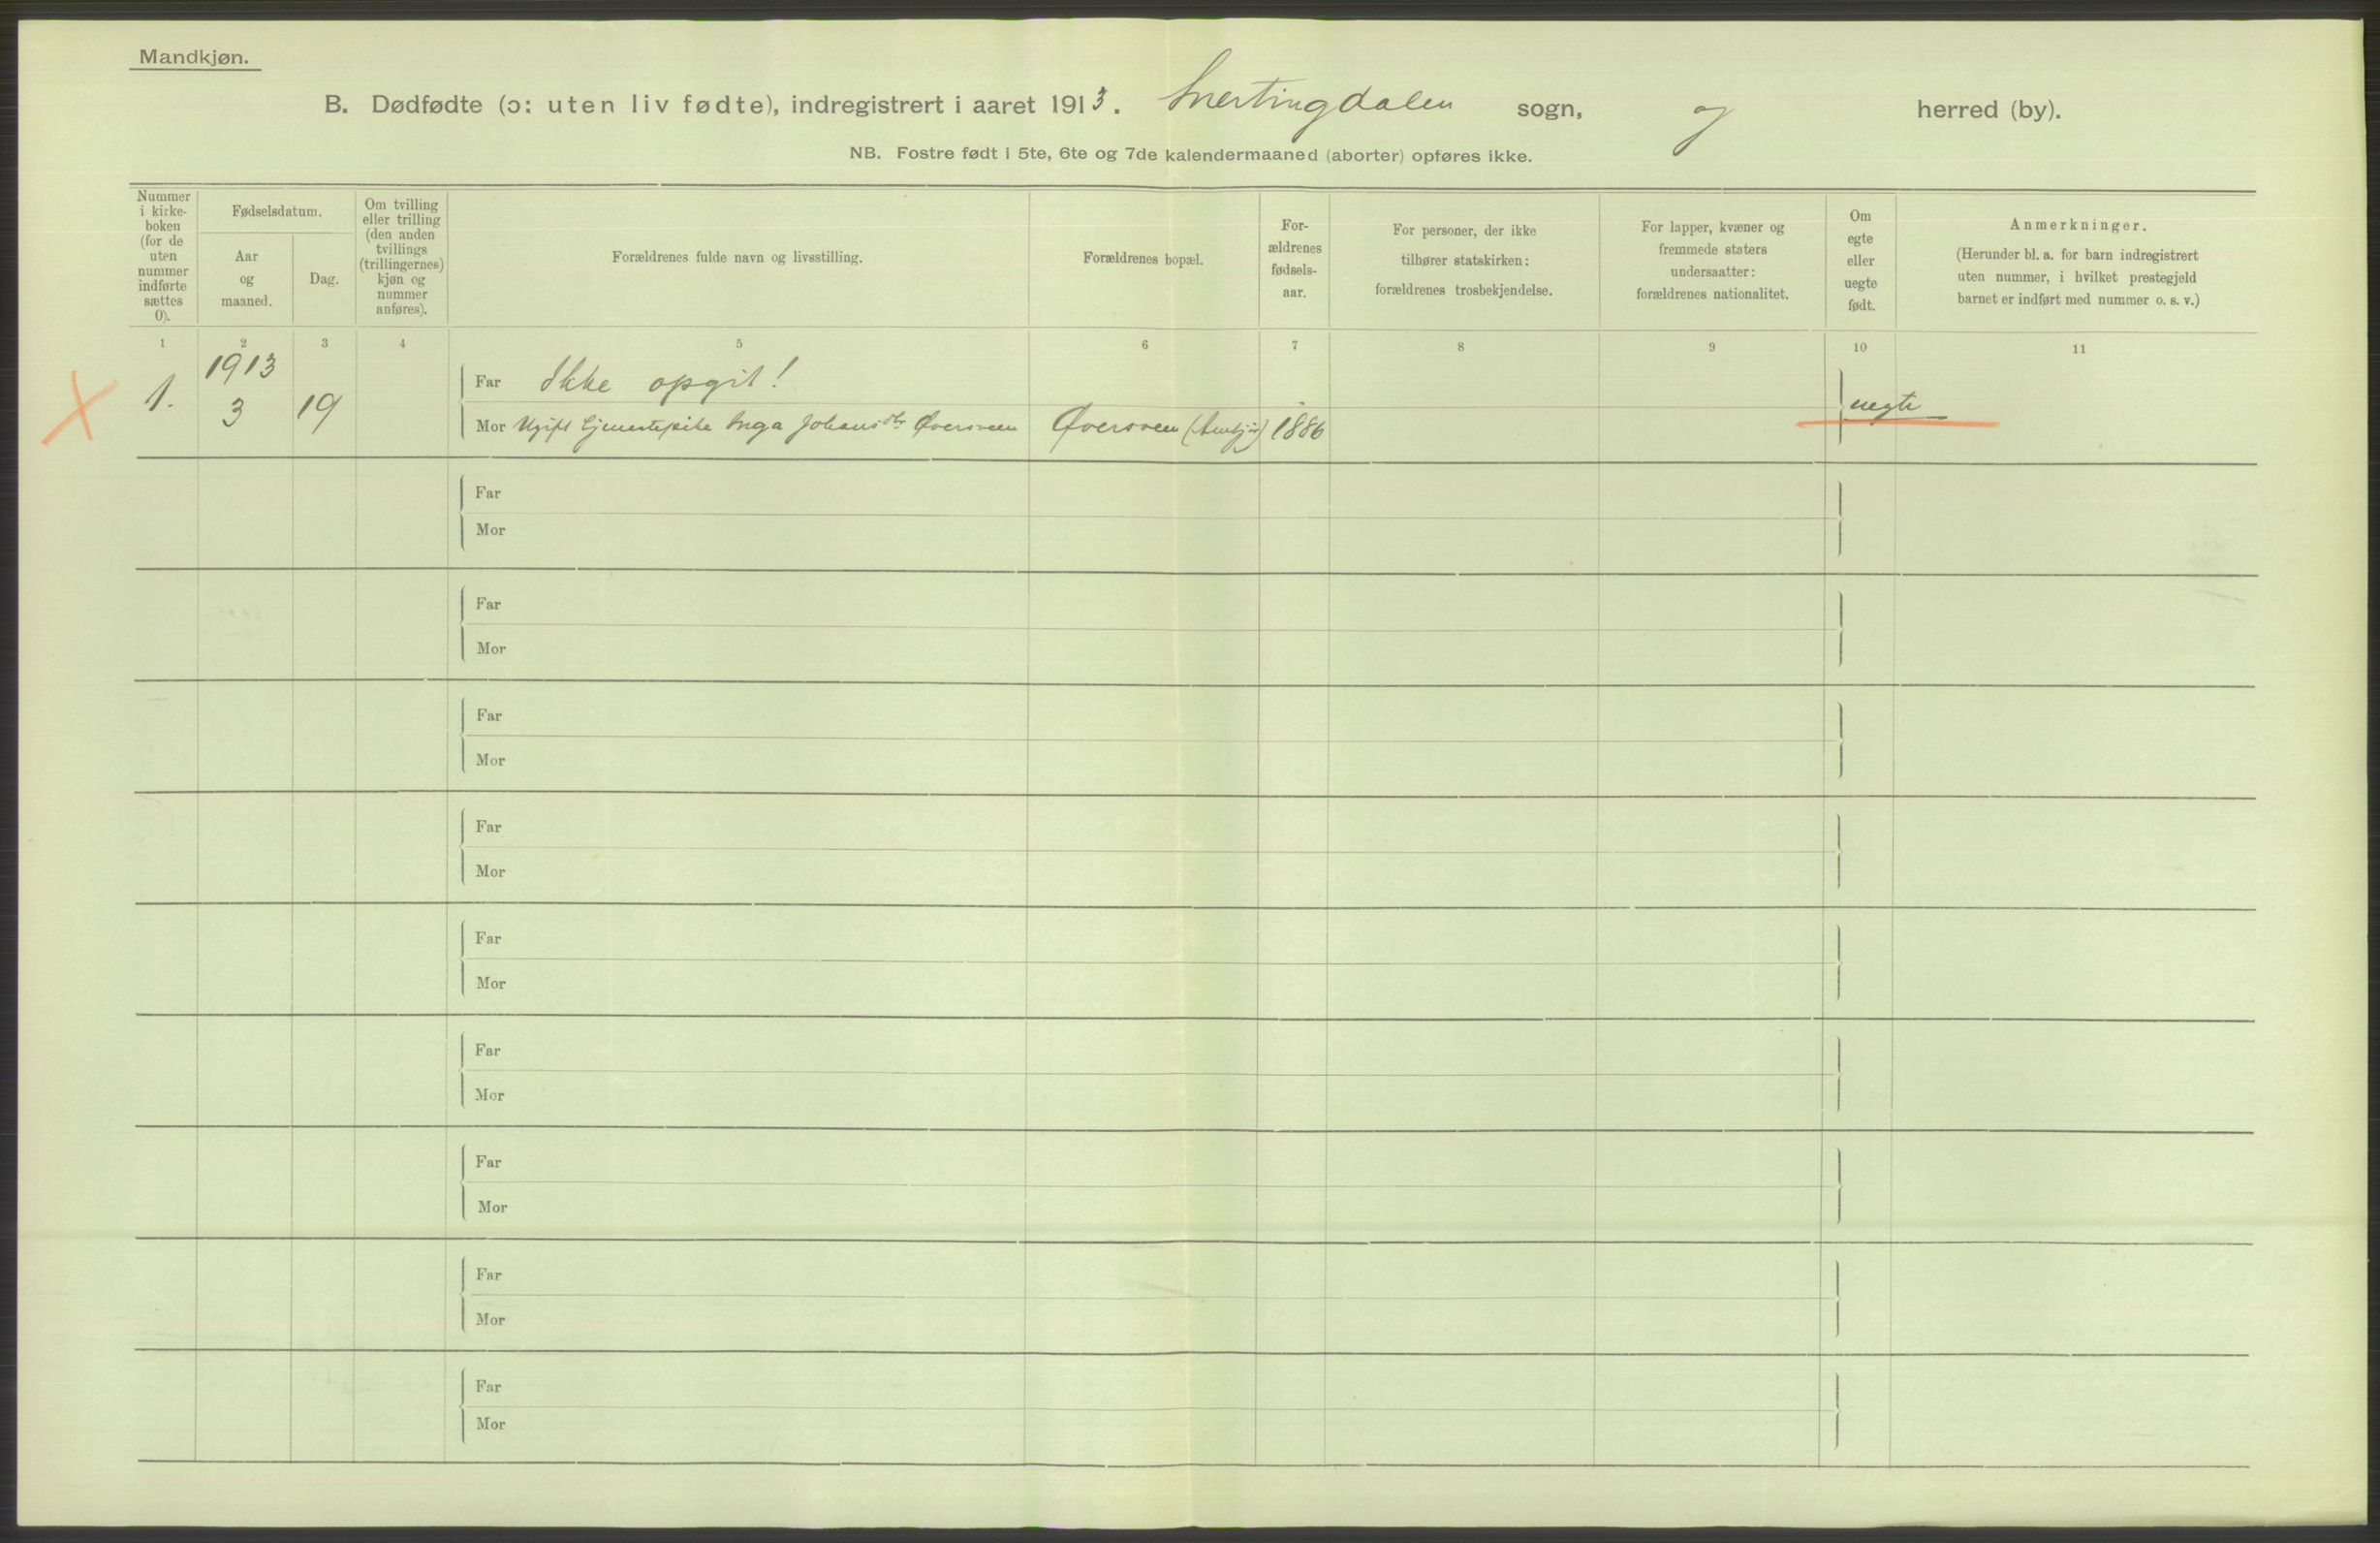 Mandkjøn.
B. Dødfødte (ɔ: uten liv fødte), indregistrert i aaret 1913. Snertingdalen sogn, og herred (by).
NB. Fostre født i 5te, 6te og 7de kalendermaaned (aborter) opføres ikke.
Nummer
i kirke-
boken
(for de
uten
nummer
indførte
sættes
0).
Fødselsdatum.
Aar
og
maaned.
Dag.
Om tvilling
eller trilling
(den anden
tvillings
(trillingernes)
kjøn og
nummer
anføres).
Forældrenes fulde navn og livsstilling.
Forældrenes bopæl.
For-
ældrenes
fødsels-
aar.
For personer, der ikke
tilhører statskirken:
forældrenes trosbekjendelse.
For lapper, kvæner og
fremmede staters
undersaatter:
forældrenes nationalitet.
Om
egte
eller
uegte
født.
Anmerkninger.
(Herunder bl. a. for barn indregistrert
uten nummer, i hvilket prestegjeld
barnet er indført med nummer o. s. v.)
1 2 3 4 5 6 7 8 9 10 11
1913
1. 3 19 Far Ikke opgit! uegte
Mor Ugift tjenestepike Inga Johansdtr Øversveen Øversveen 1886
Far
Mor
Far
Mor
Far
Mor
Far
Mor
Far
Mor
Far
Mor
Far
Mor
Far
Mor
Far
Mor